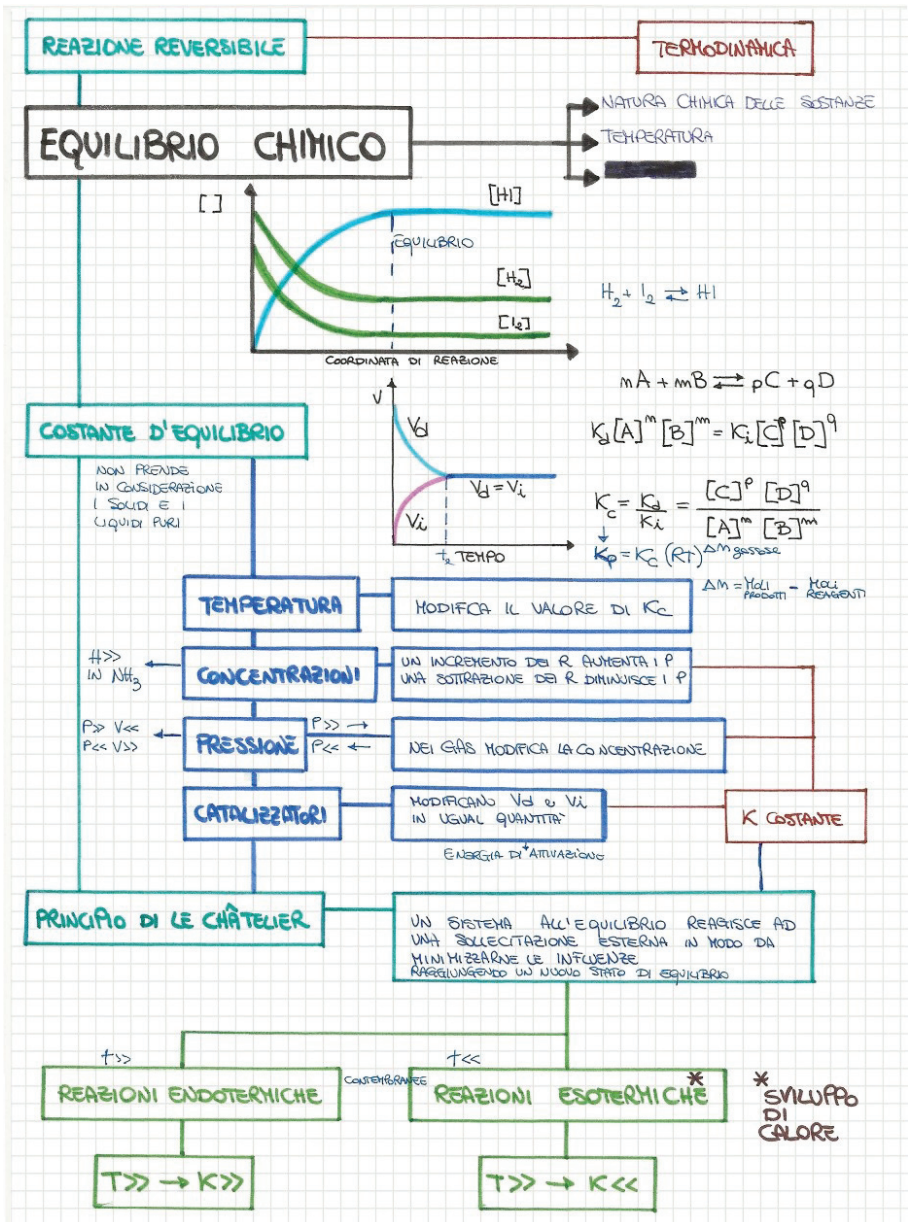 REAZIONE REVERSIBILE
TERMODINAMICA
EQUILIBRIO CHIMICO
NATURA CHIMICA DELLE SOSTANZE
TEMPERATURA
[ ]
[HI]
EQUILIBRIO
[H₂]
[I₂]
COORDINATA DI REAZIONE
H₂ + I₂ ⇄ HI
COSTANTE D'EQUILIBRIO
NON PRENDE
IN CONSIDERAZIONE
I SOLIDI E I
LIQUIDI PURI
V
Vd
Vi
Vd = Vi
TEMPO
nA + mB ⇄ pC + qD
Kd[A]ⁿ [B]ᵐ = Ki[C]ᵖ [D]^q
Kc = Kd/Ki = [C]ᵖ [D]^q / [A]ⁿ [B]ᵐ
Kp = Kc (Rt)^Δn gassose
Δn = MOLI PRODOTTI - MOLI REAGENTI
TEMPERATURA
MODIFICA IL VALORE DI Kc
H>>
IN NH₃
CONCENTRAZIONI
UN INCREMENTO DEI R AUMENTA I P
UNA SOTTRAZIONE DEI R DIMINUISCE I P
P>> V<<
P<< V>>
PRESSIONE
P>> →
P<< ←
NEI GAS MODIFICA LA CONCENTRAZIONE
CATALIZZATORI
MODIFICANO Vd e Vi
IN UGUAL QUANTITÀ
ENERGIA DI ATTIVAZIONE
K COSTANTE
PRINCIPIO DI LE CHÂTELIER
UN SISTEMA ALL'EQUILIBRIO REAGISCE AD
UNA SOLLECITAZIONE ESTERNA IN MODO DA
MINIMIZZARNE LE INFLUENZE
RAGGIUNGENDO UN NUOVO STATO DI EQUILIBRIO
t>>
t<<
REAZIONI ENDOTERMICHE
CONTEMPORANEE
REAZIONI ESOTERMICHE *
* SVILUPPO
DI
CALORE
T>> → K>>
T>> → K<<